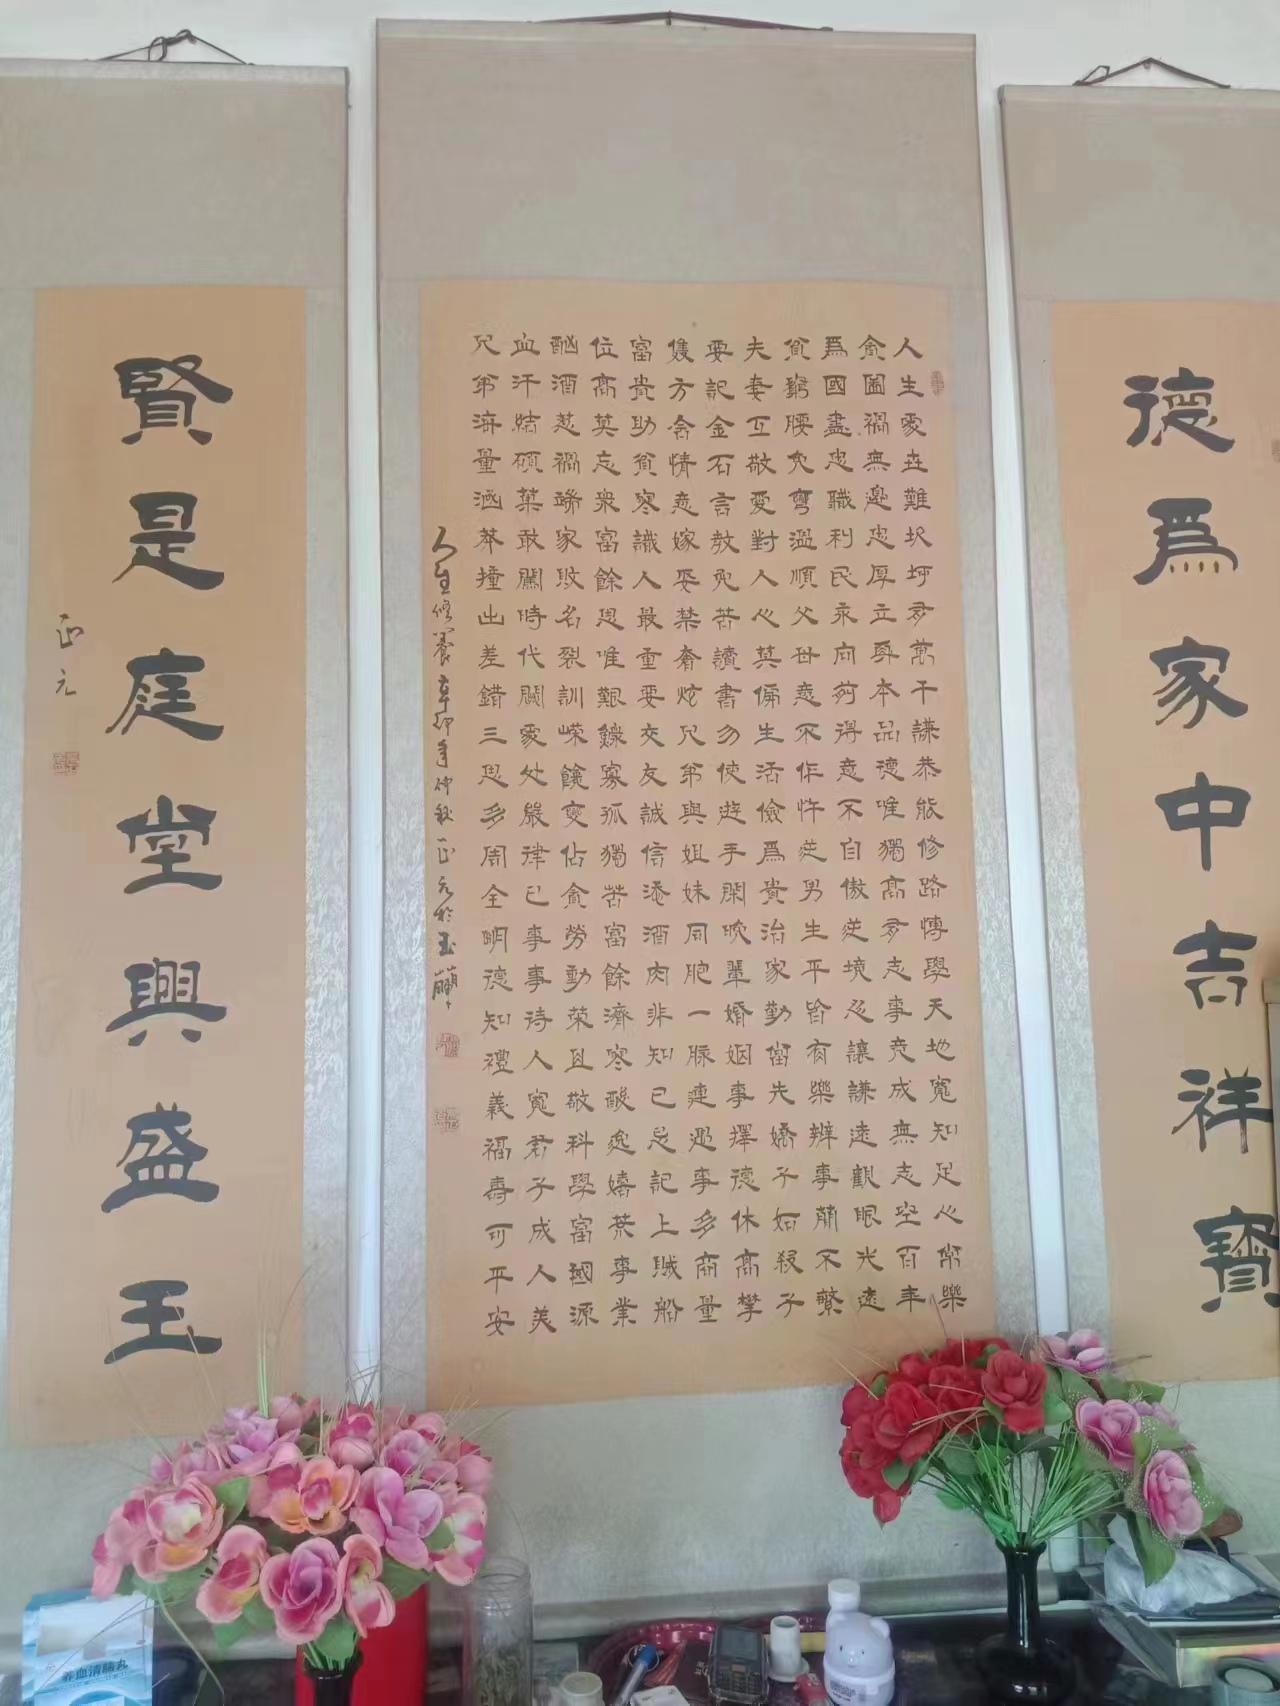 德爲家中吉祥寶
人生處世難坎坷有萬千謙恭能修路博學天地寬知足心常樂
貪圖禍無邊忠厚立身本品德唯獨高有志事竟成無志空百年
爲國盡忠職利民永向前得意不自傲逆境忍讓謙遠觀眼光遠
貧窮腰免彎溫順父母意不作忤逆男生平皆有樂辦事簡不繁
夫妻互敬愛對人心莫偏生活儉爲貴治家勤當先嬌子如殺子
要記金石言教兒苦讀書勿使遊手閑晚輩婚姻事擇德休高攀
雙方合情意嫁娶禁奢炫兄弟與姐妹同胞一脈連遇事多商量
富貴助貧寒識人最重要交友誠信添酒肉非知己忌記上賊船
位高莫忘衆富餘思唯艱鰥寡孤獨苦富餘濟寒酸逸嬉荒事業
酗酒惹禍端家敗名裂訓饞變佔貪勞動榮且敬科學富國源
血汗結碩菓敢闖時代關處处嚴律己事事待人寬君子成人美
兄弟海量涵莽撞出差錯三思多周全明德知禮義福壽可平安
人生修養辛卯年仲秋正元於玉
賢是庭堂興盛玉
正元
养血清脑丸